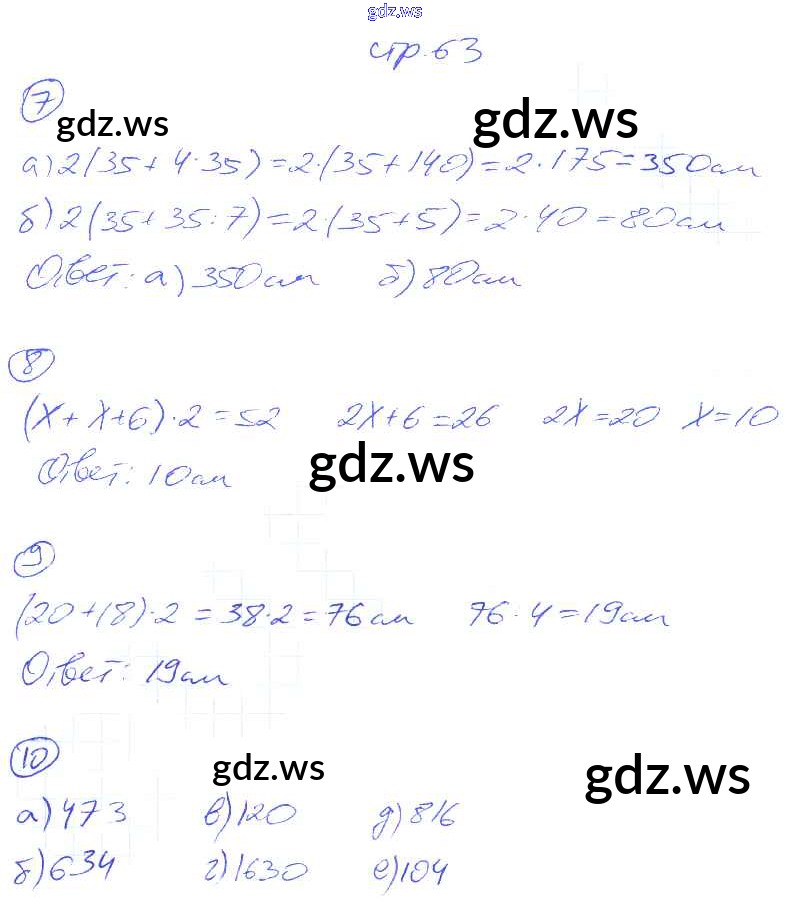 gdz.ws
стр. 63
7
gdz.ws gdz.ws
а) 2(35 + 4·35) = 2·(35 + 140) = 2·175 = 350 см
б) 2(35 + 35:7) = 2·(35 + 5) = 2·40 = 80 см
Ответ: а) 350 см б) 80 см
8
(x + x + 6)·2 = 52 2x + 6 = 26 2x = 20 x = 10
Ответ: 10 см
gdz.ws
9
(20 + 18)·2 = 38·2 = 76 см 76:4 = 19 см
Ответ: 19 см
10
gdz.ws gdz.ws
а) 473 в) 120 д) 816
б) 634 г) 1630 е) 104